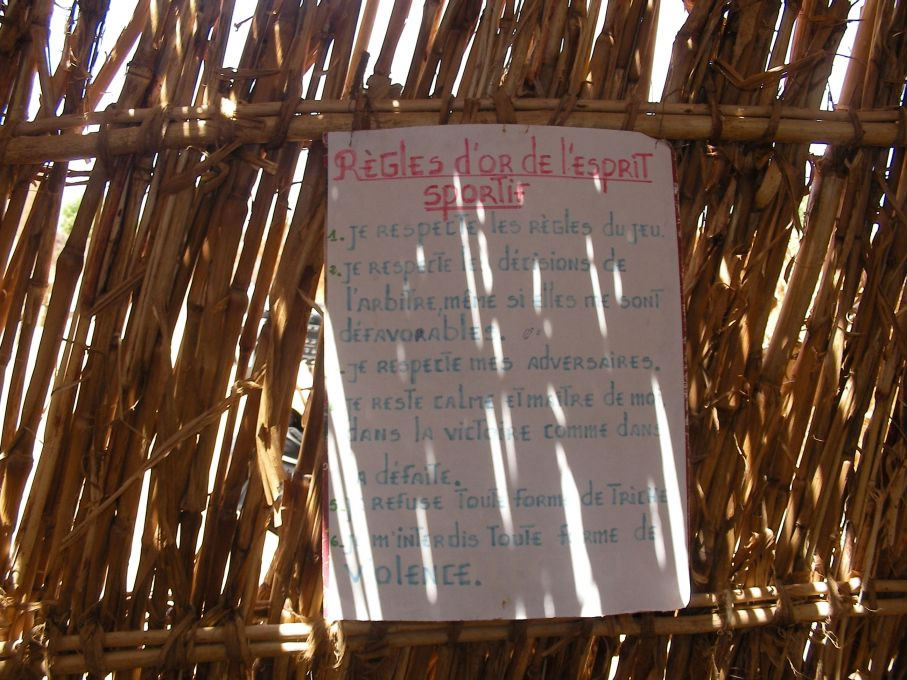 Règles d'or de l'esprit
sportif
1. je respecte les règles du jeu.
2. je respecte les décisions de
l'arbitre, même si elles me sont
défavorables.
. je respecte mes adversaires.
je reste calme et maître de moi
dans la victoire comme dans
la défaite.
5. je refuse toute forme de triche
6. je m'interdis toute forme de
violence.